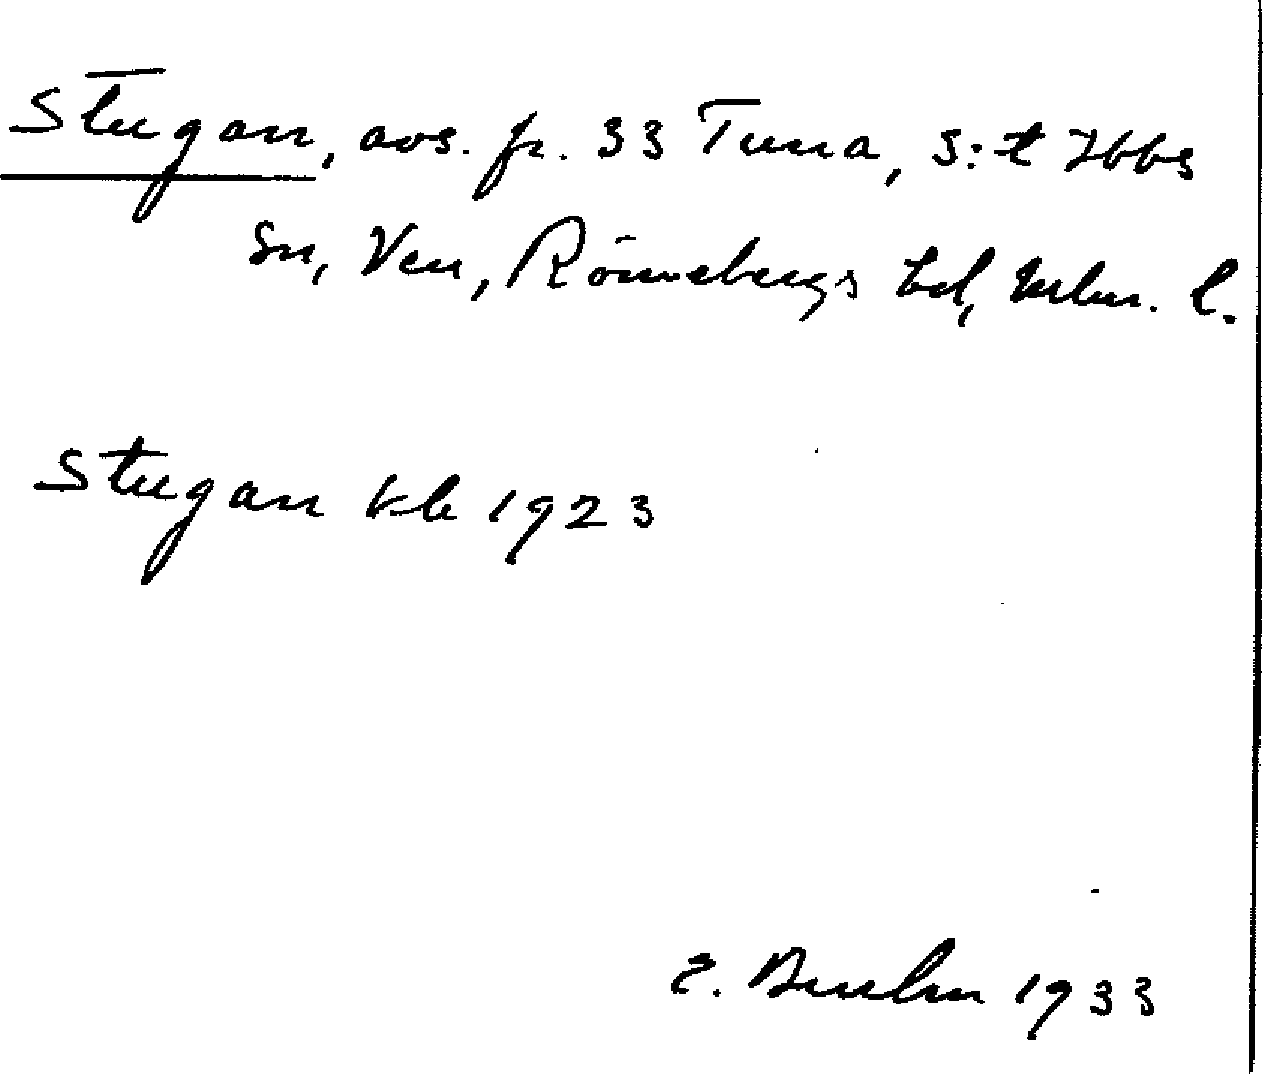 Stugan, avs. fr. 33 Tuna, S:t Ibbs
sn, Ven, Rönnebergs hd, Mlm. l.
Stugan kb 1923
E. 1933